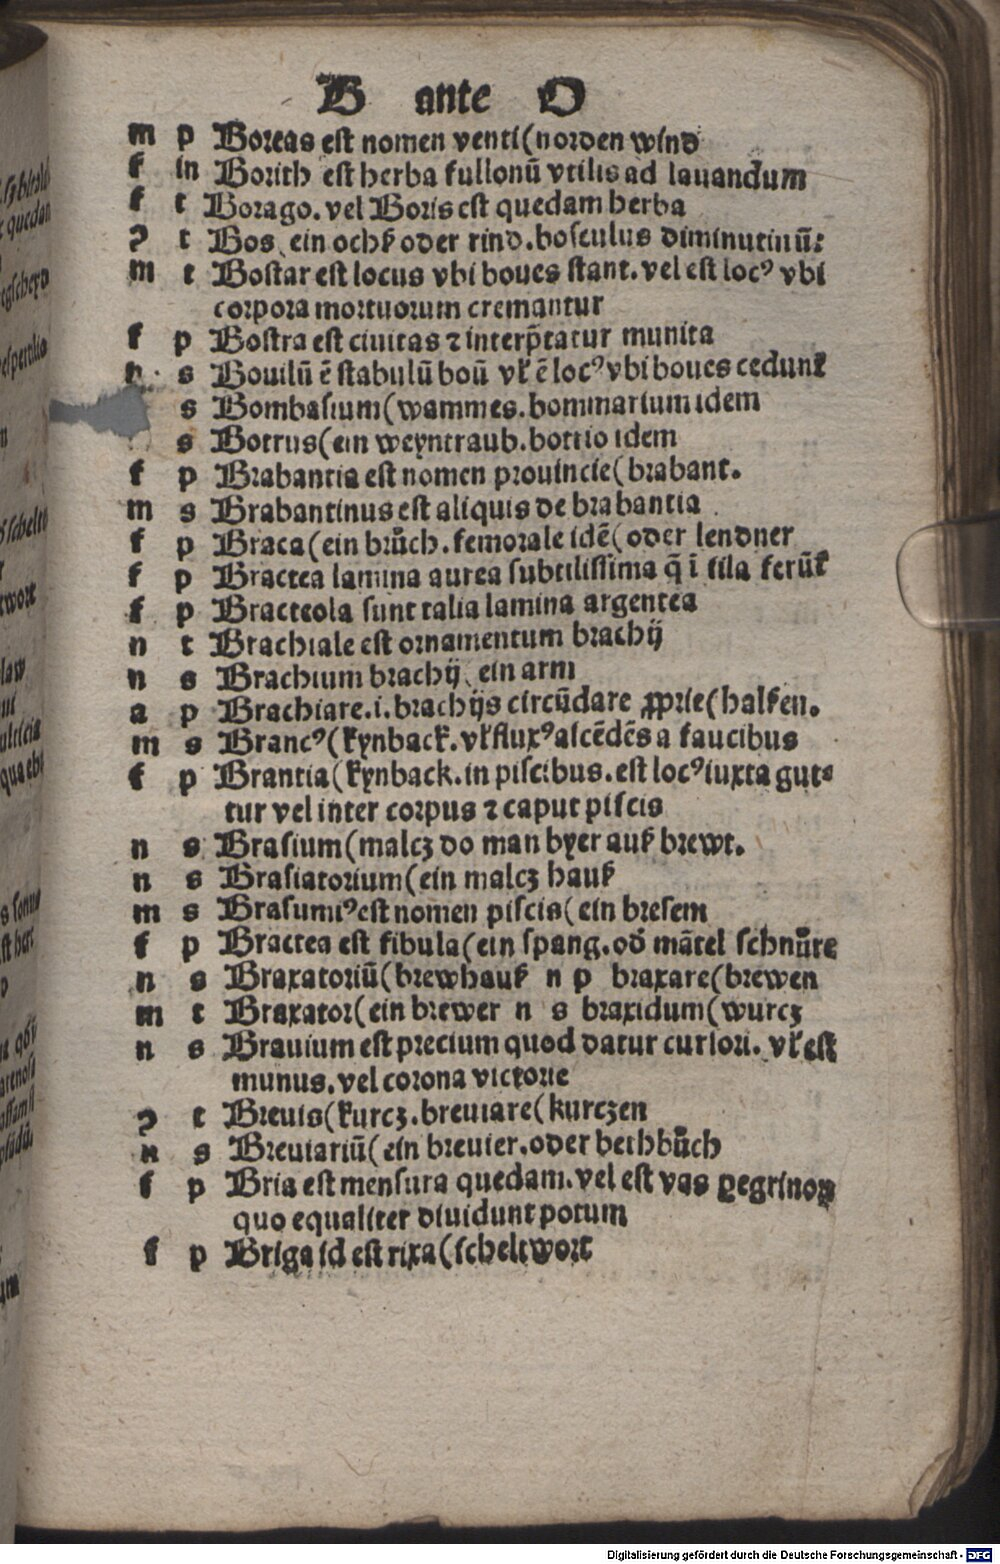 B ante O
m p Boreas est nomen venti(norden wind
f in Borith est herba fullonū vtilis ad lauandum
f t Borago. vel Boris est quedam herba
ꝯ t Bos ein ochß oder rind. bosculus diminutiuū:
m t Bostar est locus vbi boues stant. vel est locꝰ vbi
corpora mortuorum cremantur
f p Bostra est ciuitas ⁊ interp̄tatur munita
n s Bouilū ē stabulū boū vł ē locꝰ vbi boues cedunt̉
s Bombasium(wammes. bommarium idem
s Botrus(ein weyntraub. bottio idem
f p Brabantia est nomen prouincie(brabant.
m s Brabantinus est aliquis de brabantia
f p Braca(ein brůch. femorale idē(oder lendner
f p Bractea lamina aurea subtilissima q̄ ī fila ferūt̉
f p Bracteola sunt talia lamina argentea
n t Brachiale est ornamentum brachij
n s Brachium brachij ein arm
a p Brachiare .i. brachijs circūdare ꝓprie(halsen.
m s Brancꝰ(kynback. vł fluxꝰ ascēdēs a faucibus
f p Brantia(kynback. in piscibus. est locꝰ iuxta gut⸗
tur vel inter corpus ⁊ caput piscis
n s Brasium(malcz do man byer auß brewt.
n s Brasiatorium(ein malcz hauß
m s Brasumiꝰ est nomen piscis(ein bresem
f p Bractea est fibula(ein spang. od̓ mātel schnůre
n s Braxatoriū(brewhauß n p braxare(brewen
m t Braxator(ein brewer n s braxidum(wurcz
n s Brauium est precium quod datur cursori. vł est
munus. vel corona victorie
ꝯ t Breuis(kurcz. breuiare(kurczen
n s Breuiariū(ein breuier. oder bethbůch
f p Bria est mensura quedam. vel est vas ꝑegrinoꝝ
quo equaliter diuidunt potum
f p Briga id est rixa(scheltwort
Digitalisierung gefördert durch die Deutsche Forschungsgemeinschaft - DFG